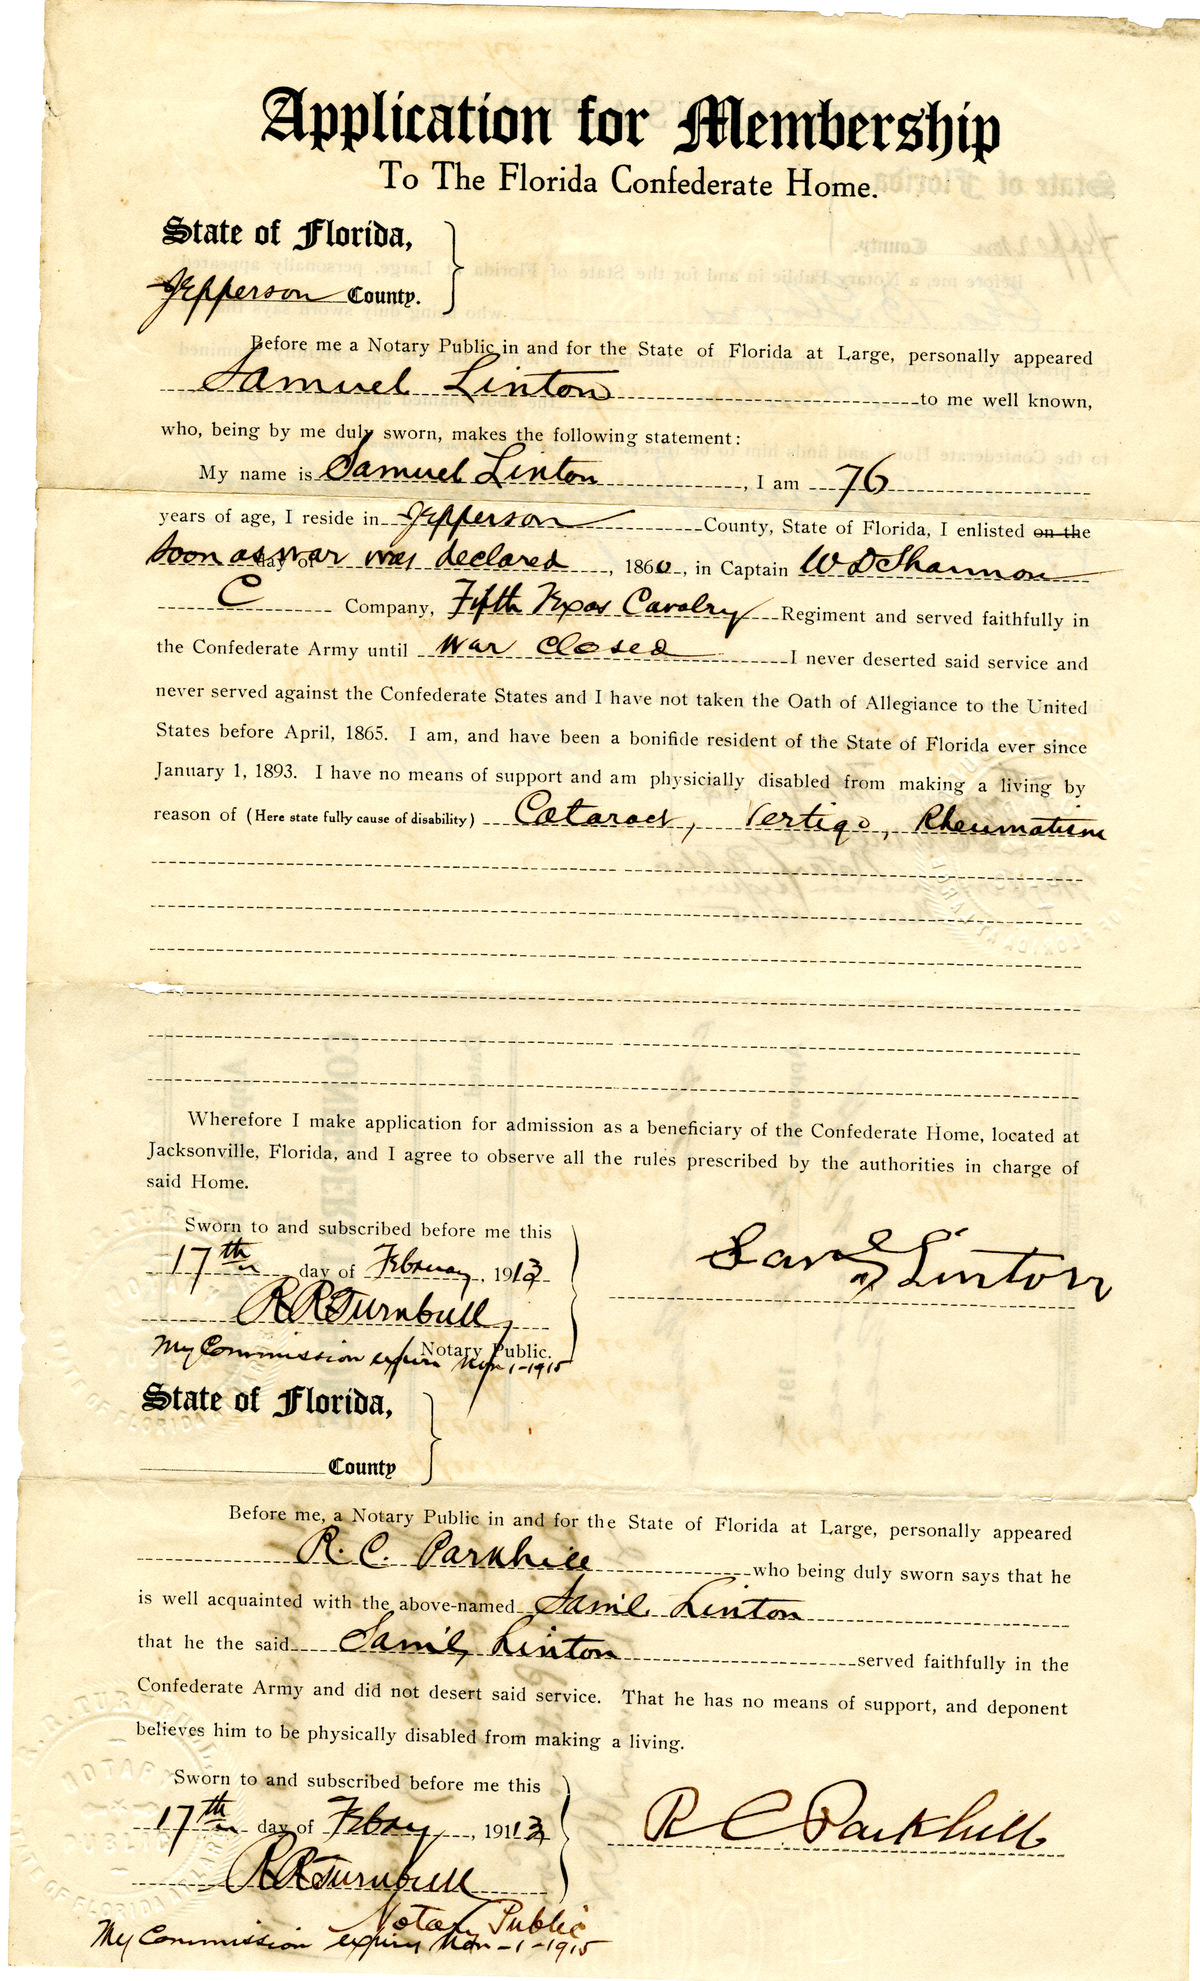 Application for Membership
To The Florida Confederate Home.
State of Florida,
Jefferson County.
Before me a Notary Public in and for the State of Florida at Large, personally appeared
Samuel Linton to me well known,
who, being by me duly sworn, makes the following statement:
My name is Samuel Linton, I am 76
years of age, I reside in Jefferson County, State of Florida, I enlisted on the
soon as war was declared day of , 1860, in Captain W D Shannon
C Company, Fifth Texas Cavalry Regiment and served faithfully in
the Confederate Army until war closed I never deserted said service and
never served against the Confederate States and I have not taken the Oath of Allegiance to the United
States before April, 1865. I am, and have been a bonifide resident of the State of Florida ever since
January 1, 1893. I have no means of support and am physicially disabled from making a living by
reason of (Here state fully cause of disability) Cataract, Vertigo, Rheumatism
Wherefore I make application for admission as a beneficiary of the Confederate Home, located at
Jacksonville, Florida, and I agree to observe all the rules prescribed by the authorities in charge of
said Home.
Sworn to and subscribed before me this
17th day of February, 1913
Saml Linton
R R Turnbull
Notary Public.
My Commission expires Nov 1-1915
State of Florida,
County
Before me, a Notary Public in and for the State of Florida at Large, personally appeared
R. C. Parkhill who being duly sworn says that he
is well acquainted with the above-named Sam'l Linton
that he the said Sam'l Linton served faithfully in the
Confederate Army and did not desert said service. That he has no means of support, and deponent
believes him to be physically disabled from making a living.
Sworn to and subscribed before me this
17th day of Febuy, 1913
R C Parkhill
R R Turnbull
Notary Public
My Commission expires Nov-1-1915
R. R. TURNBULL
NOTARY
PUBLIC
STATE OF FLORIDA AT LARGE